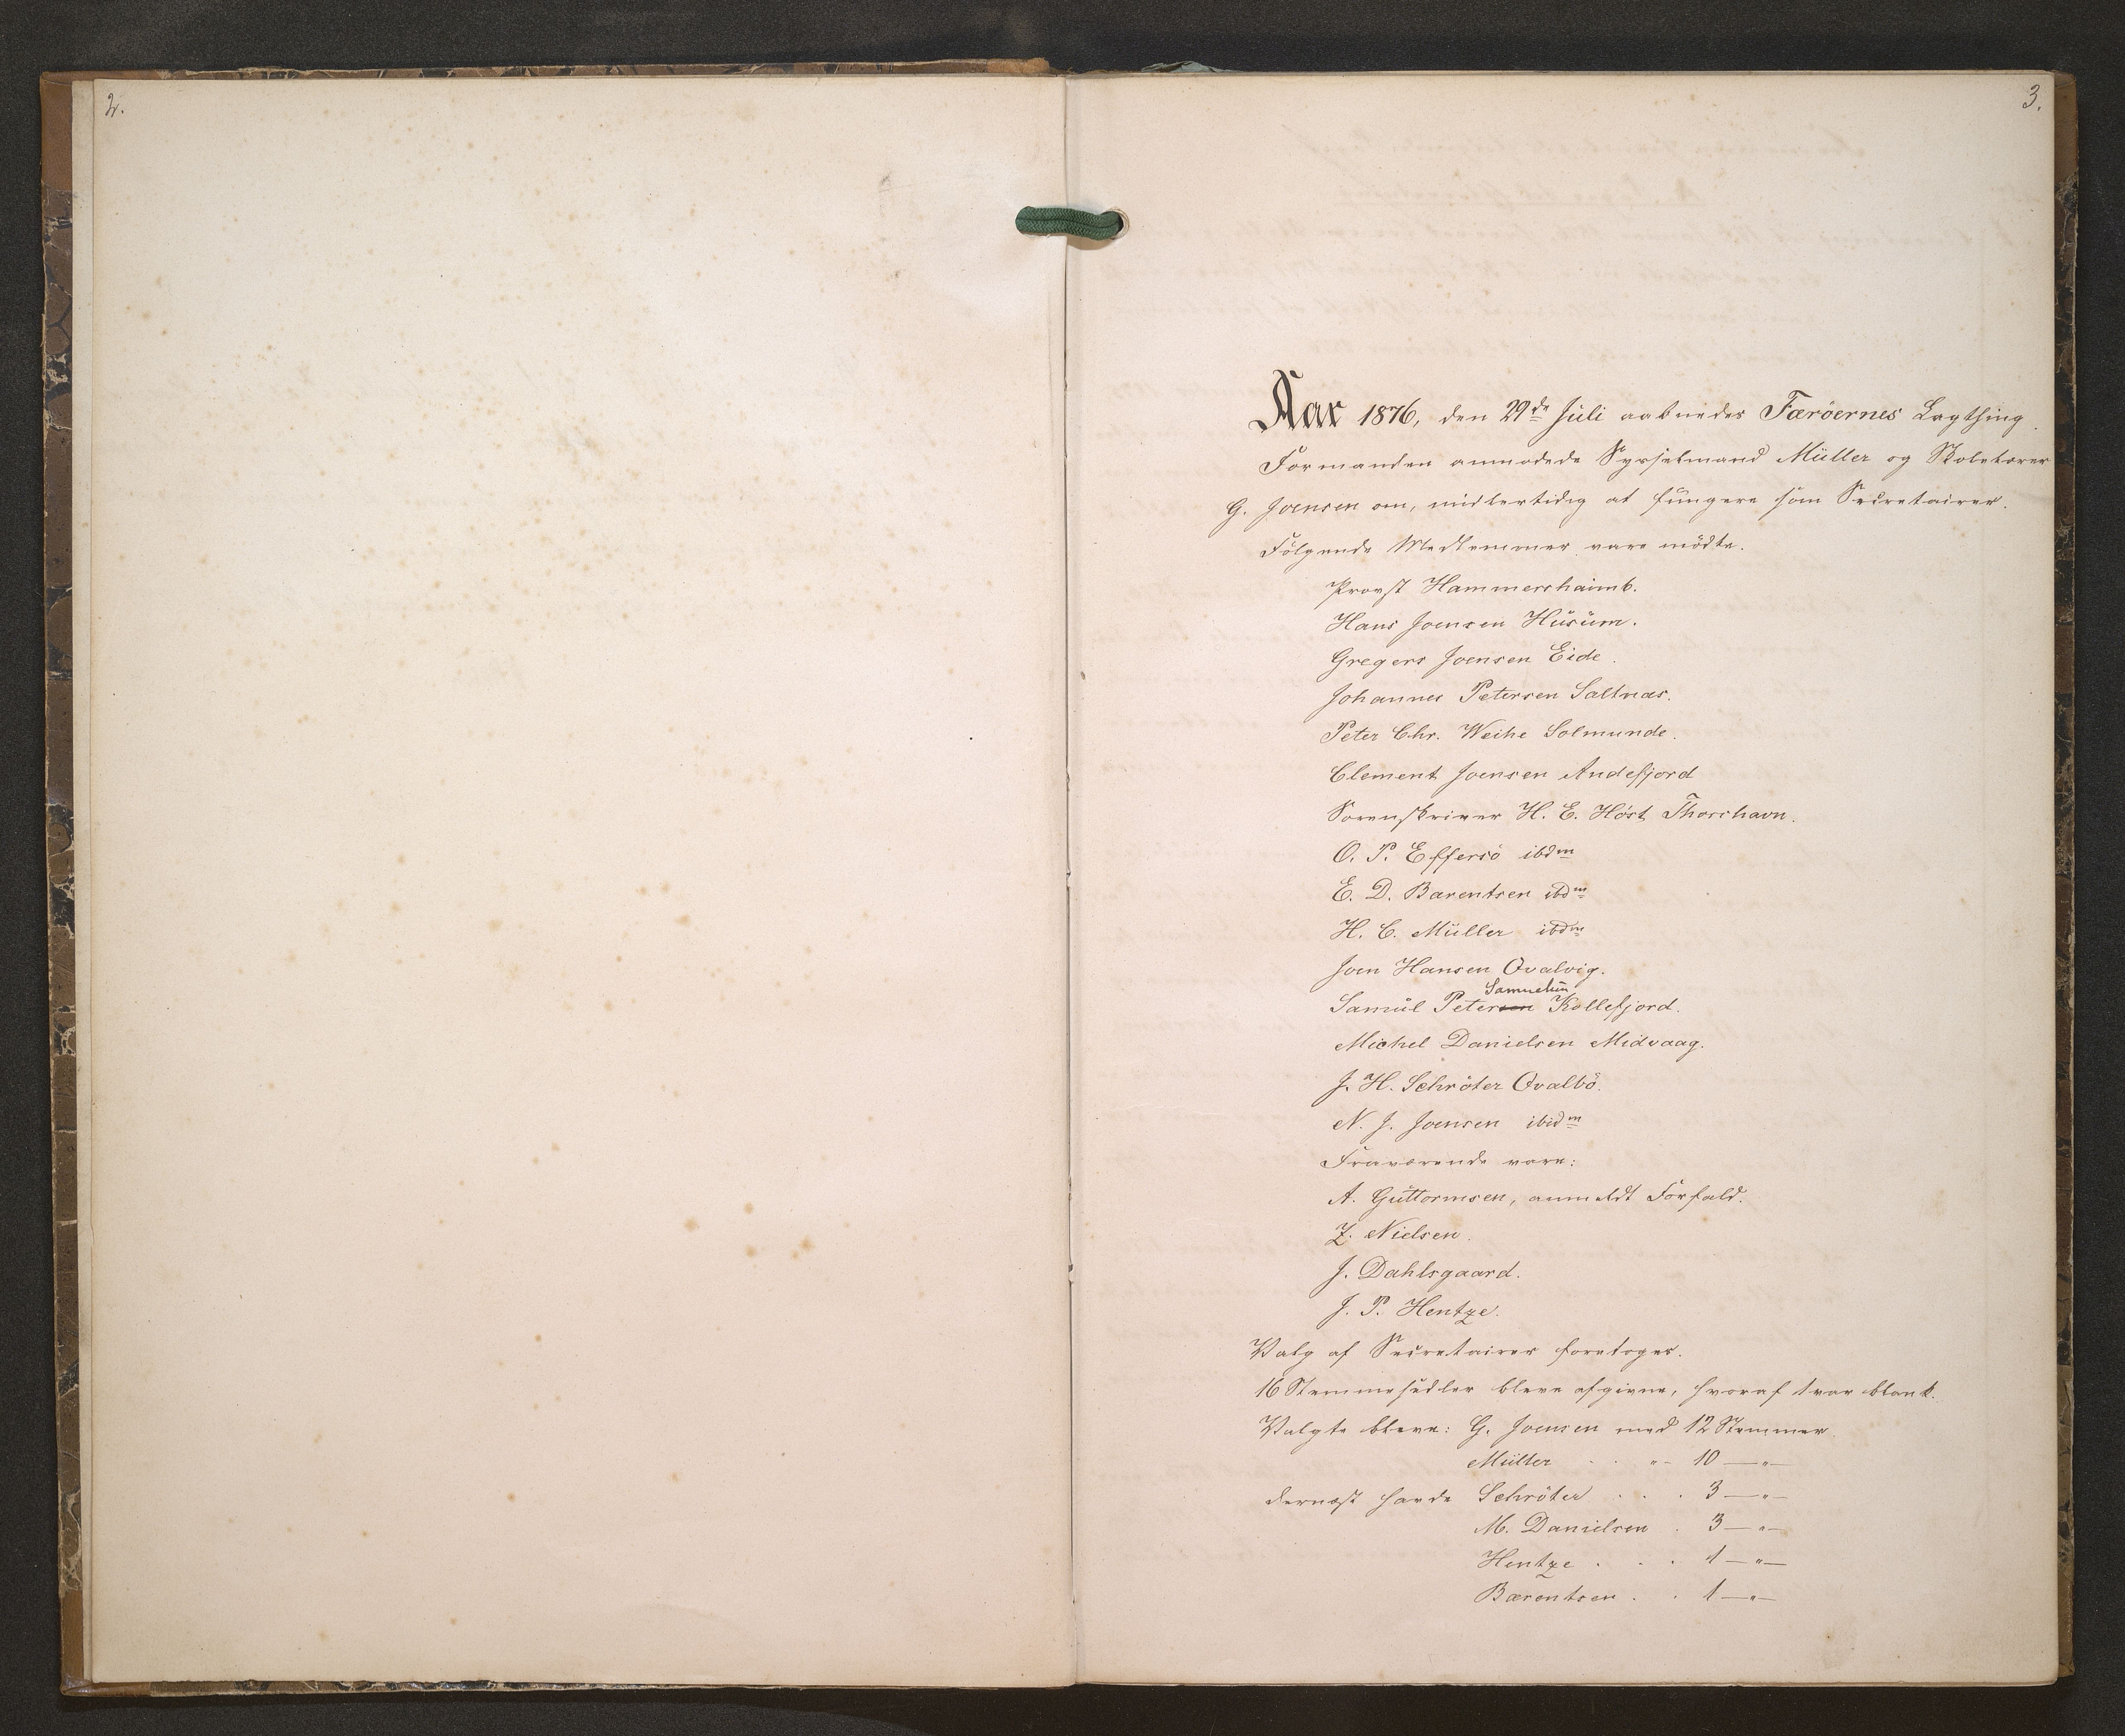 2.
3.
Aar 1876, den 29de Juli aabnedes Færöernes Lagthing.
Formanden anmodede Sysselmand Müller og Skolelærer
G. Joensen om, midlertidig at fungere som Secretairer.
Følgende Medlemmer vare mödte.
Provst Hammershaimb.
Hans Joensen Husum.
Gregers Joensen Eide.
Johannes Petersen Saltnæs.
Peter Chr. Weihe Solmunde.
Clement Joensen Andefjord
Sorenskriver H. E. Höst Thorshavn.
O. P. Effersö ibdm
E. D. Bærentsen ibdm
H. C. Müller ibdm
Joen Hansen Qvalvig.
Samuelsen
Samúl Petersen Kollefjord.
Michel Danielsen Midvaag.
J. H. Schröter Qvalbö.
N. J. Joensen ibidm
Fraværende vare:
A. Guttormsen, anmeldt Forfald.
Z. Nielsen.
J. Dahlsgaard.
J. P. Hentze.
Valg af Secretairer foretoges.
16 Stemmesedler bleve afgivne, hvoraf 1 var blank.
Valgte bleve: G. Joensen med 12 Stemmer
Müller . . " - 10 — " —
dernæst havde Schröter . . . 3 — " —
M. Danielsen . 3 — " —
Hentze . . . 1 — " —
Bærentsen . . 1 — " —